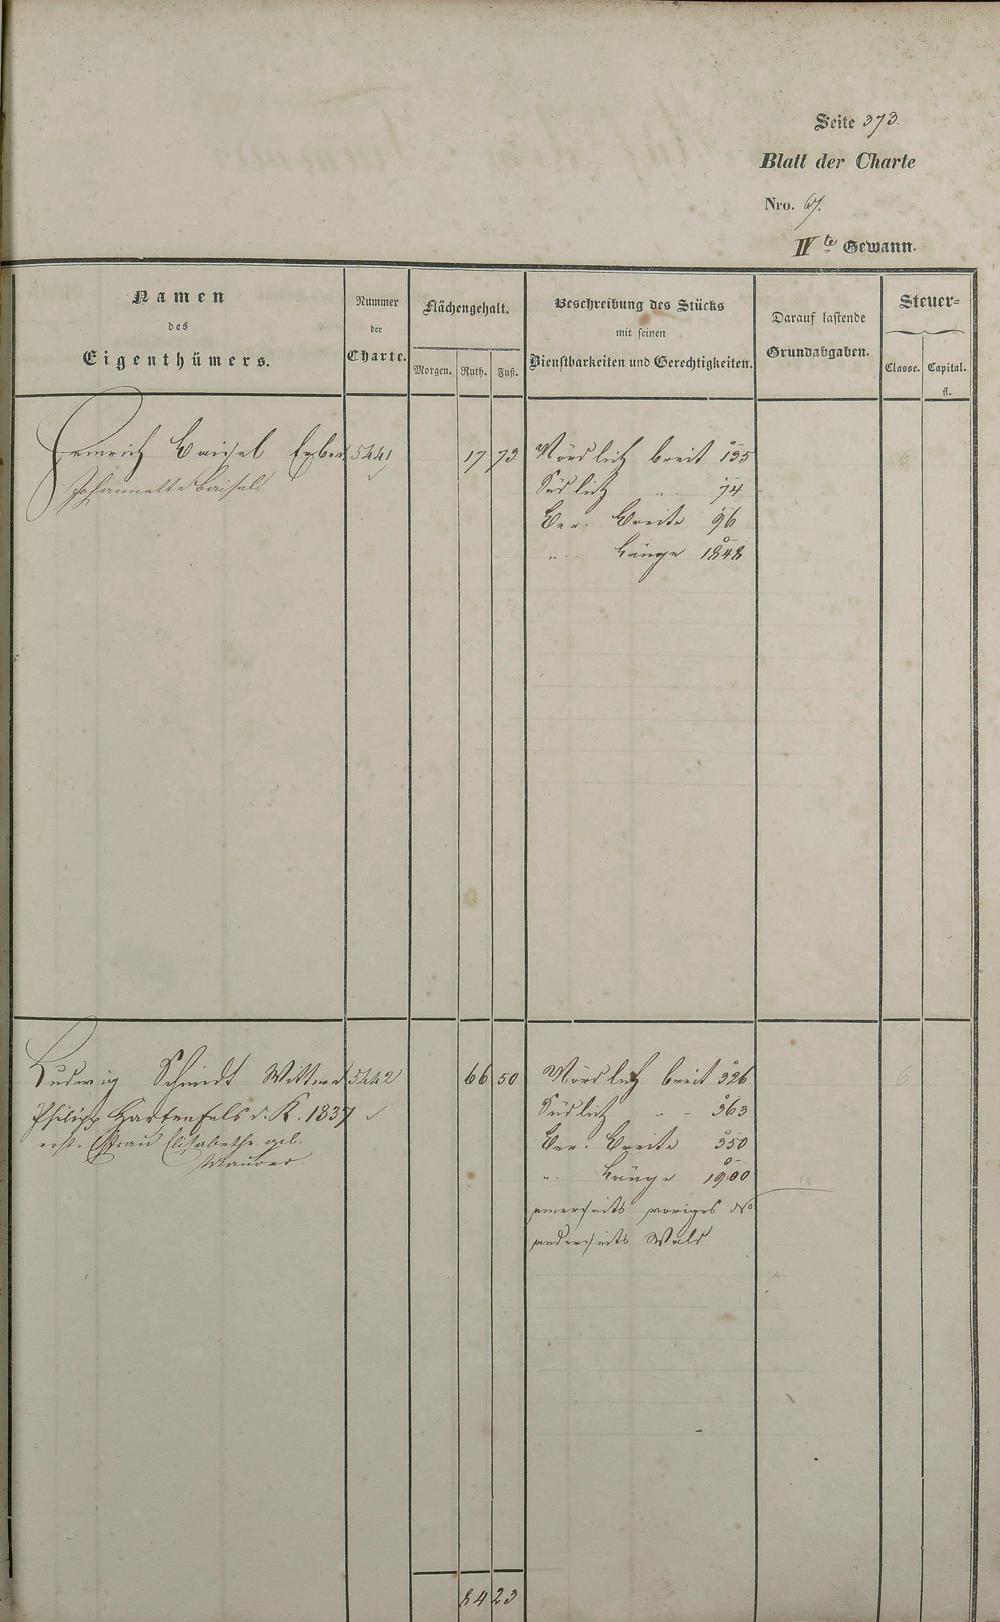 Seite 373.
Blatt der Charte
Nro. 67.
IVte Gewann.
Namen
des
Eigenthümers.
Nummer
der
Charte.
Flächengehalt.
Morgen. Ruth. Fuß.
Beschreibung des Stücks
mit seinen
Dienstbarkeiten und Gerechtigkeiten.
Darauf lastende
Grundabgaben.
Steuer=
Classe. Capital.
fl.
Heinrich Baisel Erben 5441 17 73 Nördlich breit 135
Johannette Baisel. Südlich " 74
Ber. Breite 96
" Länge 1848
6
Ludwig Schmidt Wittwe 5442 66 50 Nördlich breit 326
Philipp Hartenfels d. K. 1837 Südlich " 363
erste Frau Elisabethe geb. Ber. Breite 350
Maurer. " Länge 1900
einerseits voriges No
anderseits Wald
6
84 23